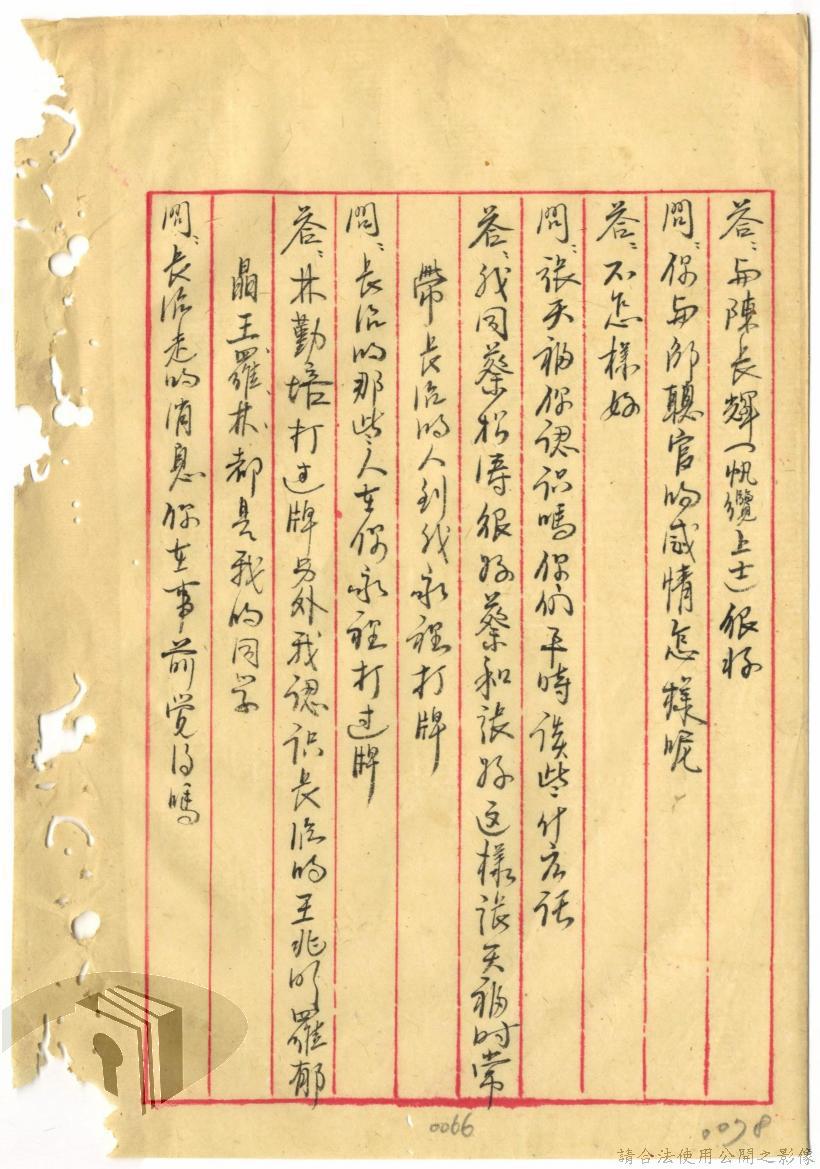 答：与陳長輝（帆纜上士）很好
問：你与邱聽官的感情怎樣呢
答：不怎樣好
問：張天福你認识嗎你們平時談些什么话
答：我同蔡松濤很好蔡和張好这樣張天福时常
帶長治的人到我永程打牌
問：長治的那些人在你永程打过牌
答：林勤培打过牌另外我認识長治的王兆昕羅郁
晶王羅林都是我的同学
問：長治走的消息你在事前觉得嗎
0066
0078
請合法使用公開之影像